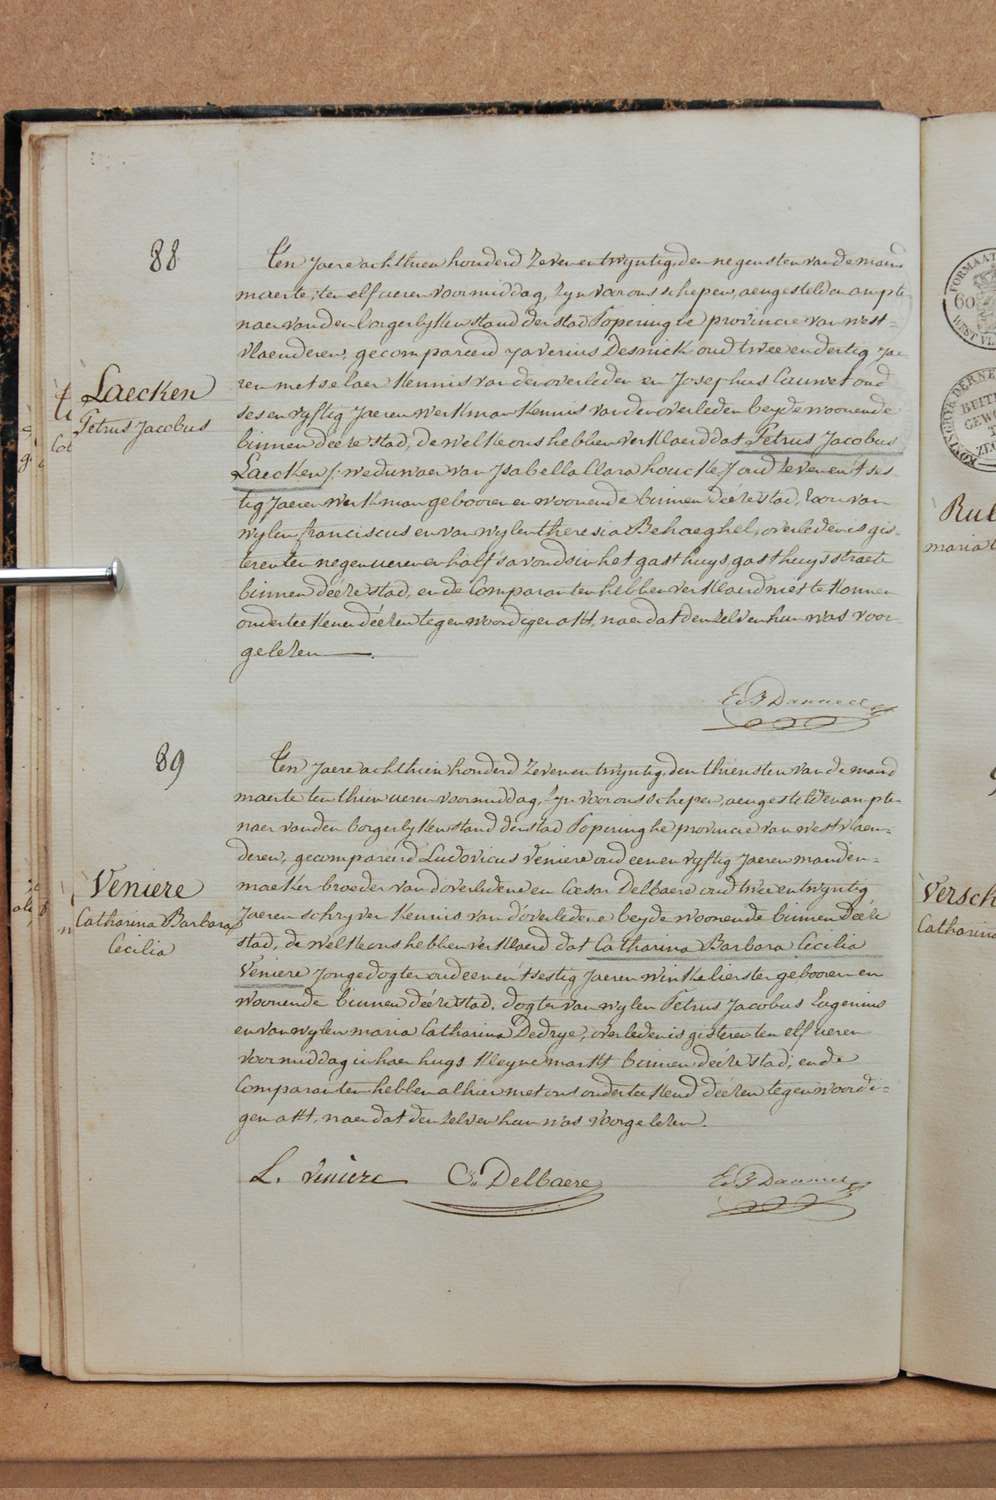 88
Laecken
Petrus Jacobus
Ten Jaere achthien honderd zeven en twyntig, den negensten van de mand
maerte, ten elf ueren voormiddag, zyn voor ons schepen, aengesteld en ampte
naer van den borgerlyken stand der stad Poperinghe provincie van west=
vlaenderen, gecompareerd Xaverius Desnick oud twee en dertig Jae
ren metselaer kennis van den overleden en Josephus Cauwet oud
ses en vyftig Jaeren werkman kennis van den overleden beyde woonende
binnen deéze stad, de welke ons hebben verklaerd dat Petrus Jacobus
Laecken /: weduwaer van Isabella Clara houcke :/ oud zeven en t'ses-
tig Jaeren werkman gebooren en woonende binnen deéze stad, zoon van
wylen franciscus en van wylen theresia Behaeghel, overleden is gis-
teren ten negen ueren en half s'avonds in het gasthuys, gasthuys straete
binnen deéze stad, en de Comparanten hebben verklaerd niet te konnen
onderteekenen deézen tegenwoordigen akt, naer dat den zelven hun was voor
gelezen.
89
Veniere
Catharina Barbara
Cecilia
Ten Jaere achthien honderd zeven en twyntig, den thiensten van de mand
maerte ten thien ueren voormiddag, zyn voor ons schepen, aengestelden ampte
naer van den borgerlyken stand der stad Poperinghe provincie van westvlaen=
deren, gecompareerd Ludovicus Veniere oud een en vyftig Jaeren manden=
maeker broeder van d'overledene en Cæsar Delbaere oud twee en twyntig
Jaeren schryver kennis van d'overledene beyde woonende binnen deéze
stad, de welke ons hebben verklaerd dat Catharina Barbara Cecilia
Veniere Jonge dogter oud een en t'sestig Jaeren winkelierster gebooren en
woonende binnen deéze stad, dogter van wylen Petrus Jacobus Eugenius
en van wylen maria Catharina Dedrye, overleden is gisteren ten elf ueren
voormiddag in haer huys kleyne markt binnen deéze stad, en de
Comparanten hebben alhier met ons onderteekend deézen tegenwoordi-
gen akt, naer dat den zelven hun was voorgelezen.
L. Veniere Cs Delbaere
Rul
maria
Versch
Catharina